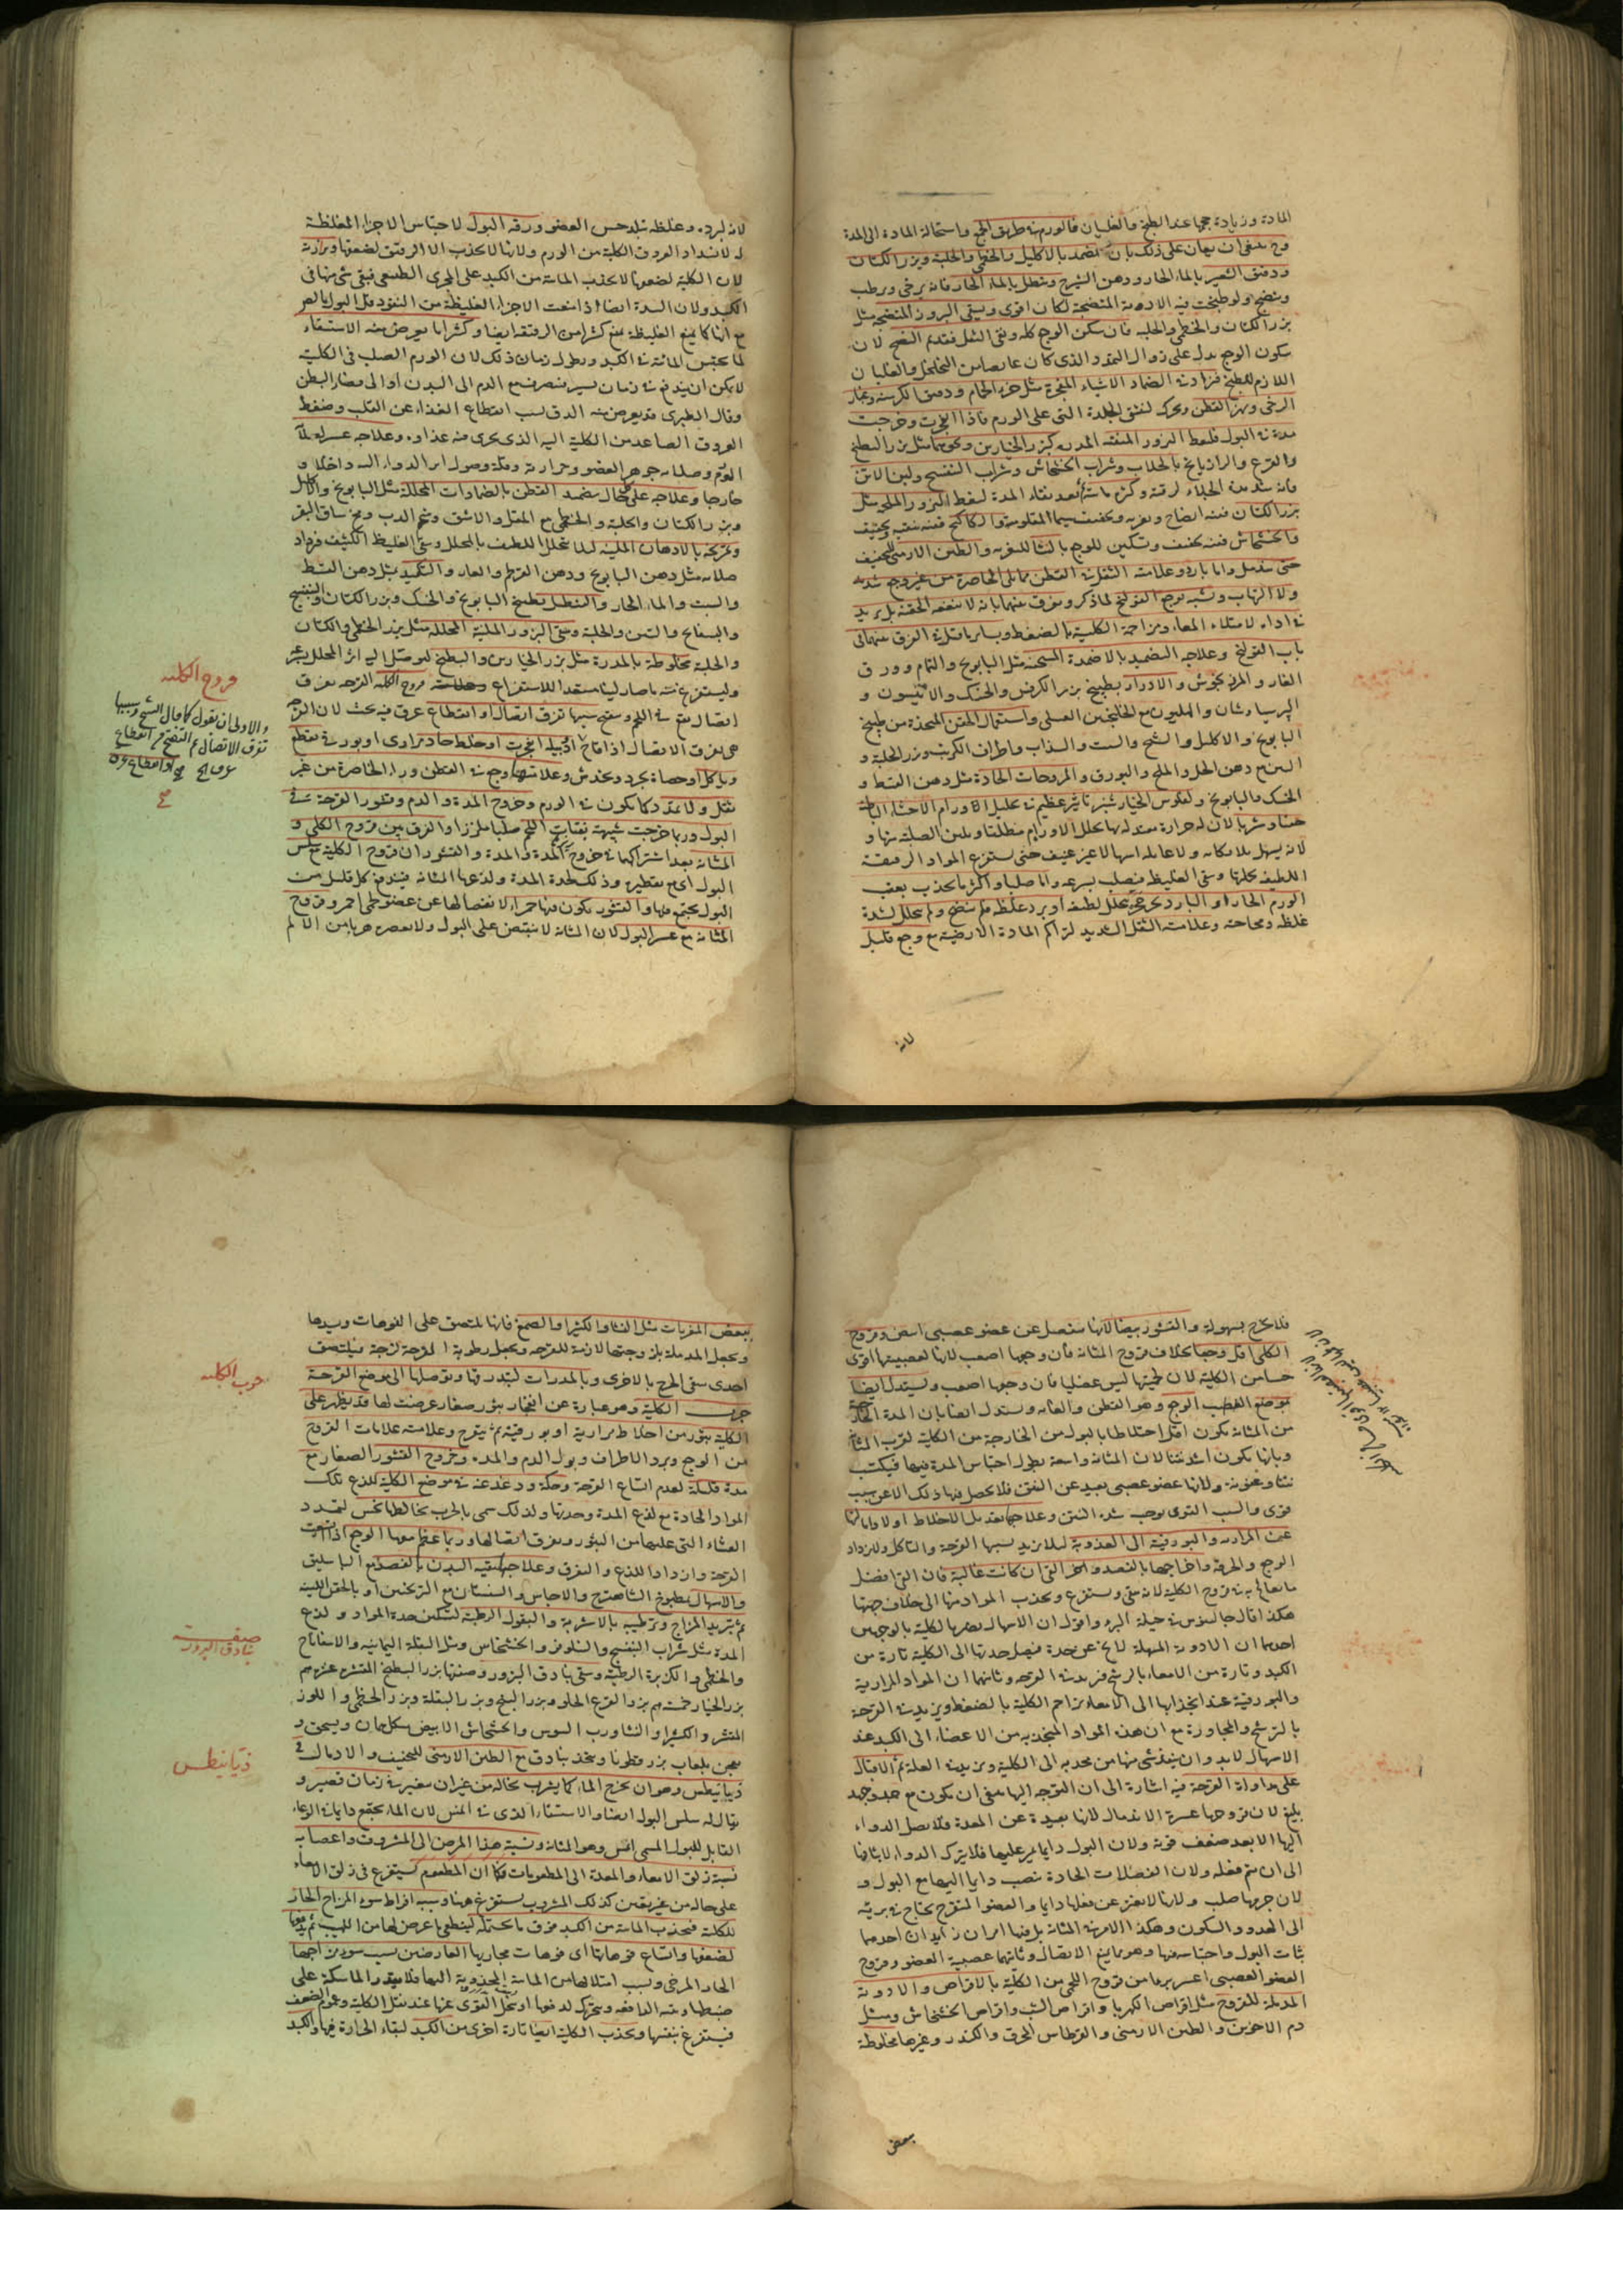 المادة وزيادة حجمها عند الطبخ والغليان فالورم في طريق الجمع واستحالة المادة الى المدة
وح ينبغي ان يعان على ذلك بان يضمد بالاكليل والخطمي والحلبة وبزر الكتان
ودقيق الشعير بالماء الحار ودهن الشيرج وينطل بالماء الحار فانه يرخي ويرطب
وينضج ولو طبخت فيه الادوية المنضجة لكان اقوى ويسقى البزور المنضجة مثل
بزر الكتان والخطمي والحلبة فان سكن الوجع كله وبقي الثقل فقد تم النضج لان
سكون الوجع يدل على زوال التمدد الذي كان عارضا من التخلخل والغليان
اللازم للطبخ فزاد في الضماد الاشياء المفجرة مثل خرء الحمام ودقيق الكرسنة وغبار
الرحى ويهز القطن ويحرك لتنشق الجلدة التي على الورم فاذا انفجرت وخرجت
مدة في البول فليعط البزور المنقية المدرة كبزر الخيارين ونحوهما مثل بزر البطيخ
والقرع والرازيانج بالجلاب وشراب الخشخاش وشراب البنفسج ولبن الاتن
فانه شديد الجلاء لرقته وكثرة مائيته ثم بعد نقاء المدة ليعط البزور الملحمة مثل
بزر الكتان ففيه انضاج وتغرية وتجفيف سيما المقلو منه والكاكنج ففيه تنقية وتجفيف
والخشخاش ففيه تجفيف وتسكين للوجع بالنشا للتغرية والطين الارمني للتجفيف
حتى يندمل واما بارد وعلامته الثقل في القطن مما يلي الخاصرة من غير وجع شديد
ولا التهاب وتشبه بوجع القولنج لما ذكر ويفرق بينهما بانه لا ينفعه الحقنة بل يزيد
في اذاه لامتلاء المعاء ومزاحمة الكلية بالضغط وبسائر ما قيل في الفرق بينهما في
باب القولنج وعلاجه التضميد بالاضمدة المسخنة مثل البابونج والنمام وورق
الغار والمرزنجوش والادرار بطبيخ بزر الكرفس والحسك والانيسون و
البرسياوشان والهليون مع الخلنجبين العسلي واستعمال الحقن المتخذة من طبيخ
البابونج والاكليل والشيح والشبت والسذاب واطراف الكرنب وبزر الحلبة و
التين مع دهن الخل والملح والبورق والمروخات الحادة مثل دهن القسط و
الحسك والبابونج ولفلوس الخيار شنبر تاثير عظيم في تحليل اورام الاحشاء الباطنة
حقنا وشربا لان له حرارة معتدلة بها يحلل الاورام مطلقا ويلين الصلبة منها و
لانه يسهل بلا مكابة ولا غايلة اسهالا غير عنيف حتى يستفرغ المواد الرقيقة
اللطيفة بكليتها ويبقى الغليظ فيصلب بسرعة واما صلبا واكثر ما يحدث بعقب
الورم الحار او البارد حتى تحلل لطيفه او برد غلظه فلم ينضج ولم يتحلل لشدة
غلظه ومجاجته وعلامته الثقل الشديد لتراكم المادة الارضية مع وجع قليل
لانه
لانه لبرده وغلظه يبلد حس العضو ورقة البول لاحتباس الاجزاء الغليظة
لانسداد العروق الكلية من الورم ولانها لا تجذب الا الرقيق لضعفها ونزارته
لان الكلية لضعفها لا تجذب المائية من الكبد على المجرى الطبيعي فبقي شي منها في
الكبد ولان السدة ايضا اذا منعت الاجزاء الغليظة من النفوذ قل البول بالضرورة
مع انها كما تمنع الغليظة تمنع كثيرا من الرقيقة ايضا وكثيرا ما يعرض منه الاستسقاء
لما تحتبس المائية في الكبد ويطول زمان ذلك لان الورم الصلب في الكلية
لا يمكن ان يندفع في زمان يسير فينصرف مع الدم الى البدن او الى فضاء البطن
وقال الطبري قد يعرض منه الدق لسبب انقطاع الغذاء عن القلب وضغط
العروق الصاعدة من الكلية اليه الذي يجري منه غذاؤه وعلاجه عسر لغلظ
الورم وصلابة جوهر العضو وحرارته وقلة وصول اثر الدواء اليه داخلا و
خارجا وعلاجه على كل حال تضميد القطن بالضمادات المحللة مثل البابونج والاكليل
وبزر الكتان والحلبة والخطمي مع المقل والاشق وشحم الدب ومخ ساق البقر
وتمريخه بالادهان الملينة لئلا يتحلل اللطيف بالمحلل ويبقى الغليظ الكثيف فيزداد
صلابة مثل دهن البابونج ودهن القرطم والغار والتكميد بمثل دهن القسط
والشبت والماء الحار والتنطيل بطبيخ البابونج والحسك وبزر الكتان والبنفسج
والبسفايج والتين والحلبة وسقي البزور الملينة المحللة مثل بزر الخطمي والكتان
والحلبة مخلوطة بالمدرة مثل بزر الخيارين والبطيخ ليوصل اليه اثر المحلل بسرعة
وليستفرغ عنه ما صار لينا مستعدا للاستفراغ قروح الكلية القرحة تفرق
اتصال يقع في اللحم ويقيح سببها تفرق اتصال او انقطاع عرق فيه بحث لان القرحة
هي تفرق الاتصال اذا قاح او دبيلة انفجرت او خلط حاد مراري او بورقي يقطع
وياكل او حصاة تجرد وتخدش وعلامتها وجع في القطن وراء الخاصرة من غير
ثقل ولا تمدد كما يكون في الورم وخروج المدة والدم وقشور القرحة في
البول وربما خرجت شبيهة بفتات اللحم صلبا ملززا والفرق بين قروح الكلى و
المثانة بعد اشتراكهما في خروج المدة والقشور ان قروح الكلية مع سلس
البول اي مع تقطيره وذلك لحدة المدة ولذعها المثانة فيندفع كل قليل من
البول يجتمع فيها والقشور يكون فيها حمراء لانفصالها عن عضو لحمي احمر وقروح
المثانة مع عسر البول لان المثانة لا تنقبض على البول ولا تعصره هربا من الالم
قروح الكلية
والاولى ان يقول كما قال الشيخ وسببها
تفرق الاتصال ثم التقيح من انقطاع
فلا يخرج بسهولة والقشور بيضا لانها تنفصل عن عضو عصبي ابيض وقروح
الكلى اقل وجعا بخلاف قروح المثانة فان وجعها اصعب لانها لعصبيتها اقوى
حسا من الكلية لان لحميتها ليس عضليا فان وجعها اصعب ويستدل ايضا
بموضع الوجع وهو القطن والعانة ويستدل ايضا بان المدة الخارجة
من المثانة يكون اقل اختلاطا بالبول من الخارجة من الكلية لقرب المثانة
وبانها يكون اشد نتنا لان المثانة واسعة يطول احتباس المدة فيها فيكتسب
نتنا وعفونة ولانها عضو عصبي بعيد عن العفن فلا يحصل فيها ذلك الا عن سبب
قوي والسبب القوي يوجب شدة النتن وعلاجها تعديل الاخلاط اولا وامالتها
عن المرارة والبورقية الى العذوبة لئلا يزيد بسببها القرحة والتاكل ولا يزداد
الوجع والحرقة واخراجها بالفصد واخر القي ان كانت غالبة فان القي افضل
ما يعالج به قروح الكلية لانه ينقي ويستفرغ ويجذب المواد منها الى خلاف جهتها
هكذا قال جالينوس في حيلة البرء واقول ان الاسهال يضر بالكلية بالوجهين
احدهما ان الادوية المسهلة لا يخ عن حدة فيصل حدتها الى الكلية تارة من
الكبد وتارة من الامعاء بالرشح فيزيد في القرحة وثانيهما ان المواد المرارية
والبورقية عند انجذابها الى الامعاء يزاحم الكلية بالضغط ويزيد في القرحة
بالترشح والمجاورة مع ان هذه المواد المنجذبة من الاعضاء الى الكبد عند
الاسهال لا بد وان ينفذ شي منها من محدبه الى الكلية ويزيد في العلة ثم الاقبال
على مداواة القرحة فيه اشارة الى ان التوجه اليها ينبغي ان يكون مع جد وجهد
بليغ لان قروحها عسرة الاندمال لانها بعيدة عن المعدة فلا يصل الدواء
اليها الا بعد ضعف قوته ولان البول دايما يمر عليها فلا يترك الدواء لابثا فيها
الى ان يتم فعله ولان الفضلات الحادة تنصب دايما اليها مع البول و
لان جرمها صلب ولانها لا يفتر عن فعلها دايما والعضو المتقرح يحتاج في برئه
الى الهدو والسكون وهكذا الامر في المثانة بل فيها امران زايدان احدهما
ثبات البول واحتباسه فيها وهو يمانع الاتصال وثانيهما عصبية العضو وقروح
العضو العصبي اعسر برءا من قروح اللحمي من الكلية بالاقراص والادوية
المدملة للقروح مثل اقراص الكهربا واقراص الشب واقراص الخشخاش ومثل
دم الاخوين والطين الارمني والقرطاس المحرق والكندر وغيرها مخلوطة
بعض
ببعض المغريات مثل النشا والكثيرا والصمغ فانها يلتصق على الفوهات ويسدها
ويجعل المدملة بلزوجتها لازمة للقرحة ويجعل رطوبة القرحة لزجة فيلتصق
احدى سقي الجرح بالاخرى وبالمدرات ليبدرقها ويوصلها الى موضع القرحة
جرب الكلية وهو عبارة عن انفجار بثور صغار عرضت لها قد يظهر على
الكلية بثور من اخلاط مرارية او بورقية ثم يتقرح وعلامته علامات القروح
من الوجع وبرد الاطراف وبول الدم والمدة وخروج القشور الصغار مع
مدة قليلة لعدم اتساع القرحة وحكة ودغدغة في موضع الكلية للذع تلك
المواد الحادة مع لذع المدة وحدتها ولذلك سمي بالجرب يخالطها نخس لتمدد
الغشاء التي عليها من البثور وتفرق اتصالها وربما عظم معها الوجع اذا اتسعت
القرحة وازداد اللذع والتفرق وعلاجها تنقية البدن بالفصد مع الباسليق
والاسهال بمطبوخ الشاهترج والاجاص والسبستان مع الترنجبين او بالحقن اللينة
ثم تبريد المزاج وترطيبه بالاشربة والبقول الرطبة لتسكين حدة المواد ولذع
المدة مثل شراب البنفسج والنيلوفر والخشخاش ومثل البقلة اليمانية والاسفاناخ
والخطمي والكزبرة الرطبة وسقي بنادق البزور وصفتها بزر البطيخ المقشر عشرة دراهم
بزر الخيار خمسة دراهم بزر القرع الحلو وبزر البنج وبزر البقلة وبزر الخطمي واللوز
المقشر والكثيرا والنشا ورب السوس والخشخاش الابيض من كل درهمان ويسحق و
يعجن بلعاب بزر قطونا ويتخذ بنادق مع الطين الارمني للتجفيف والادمال
ذيانيطس وهو ان يخرج الماء كما يشرب بحاله من غير ان يتغير في زمان قصير و
يقال له سلس البول ايضا والاستسقاء الذي في المثانة لان الماء يجتمع دايما في الوعاء
القابل للبول المسمى امس وهو المثانة ونسبة هذا المرض الى المشروب واعضائه
نسبة زلق الامعاء والمعدة الى المطعومات فكما ان المطعوم يستفرغ في زلق الامعاء
على حاله من غير تغير كذلك المشروب يستفرغ ههنا وسببه افراط سوء المزاج الحار
للكلية فيجذب المائية من الكبد فوق ما تحتمله لينطفي ما عرض لها من اللهيب ثم يدفعها
لضعفها واتساع فوهاتها اي فوهات مجاريها العارضين بسبب سوء مزاجها
الحار المرخي وبسبب امتلائها من المائية المجذوبة اليها فلا يقدر الماسكة على
ضبطها وتنبه الدافعة ويتحرك لدفعها او تخل القوى عنها عند ثقل الكلية وعموم الضعف
فيستفرغ بنفسها ويجذب الكلية ايضا تارة اخرى من الكبد لبقاء الحرارة فيها والكبد
جرب الكلية
صفة
بنادق البزور
ذيانيطس